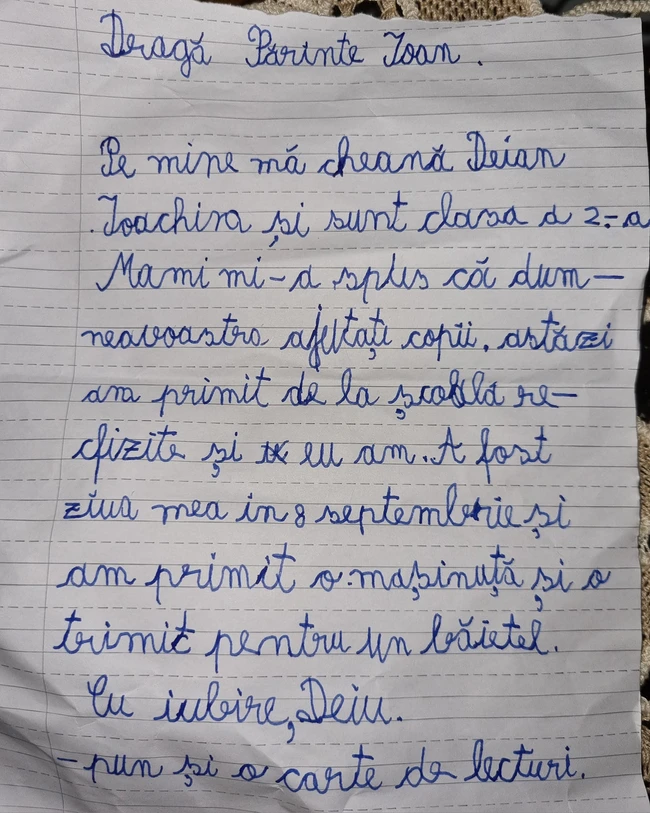 Dragă Părinte Ioan.
Pe mine mă cheamă Deian
Ioachim și sunt clasa a 2-a
Mami mi-a splus că dum-
neavoastra ajutați copii. astăzi
am primit de la școala re-
cfizite și eu am. A fost
ziua mea in 8 septembrie și
am primit o mașinuță și o
trimit pentru un băietel.
Cu iubire, Deiu.
-pun și o carte de lecturi.